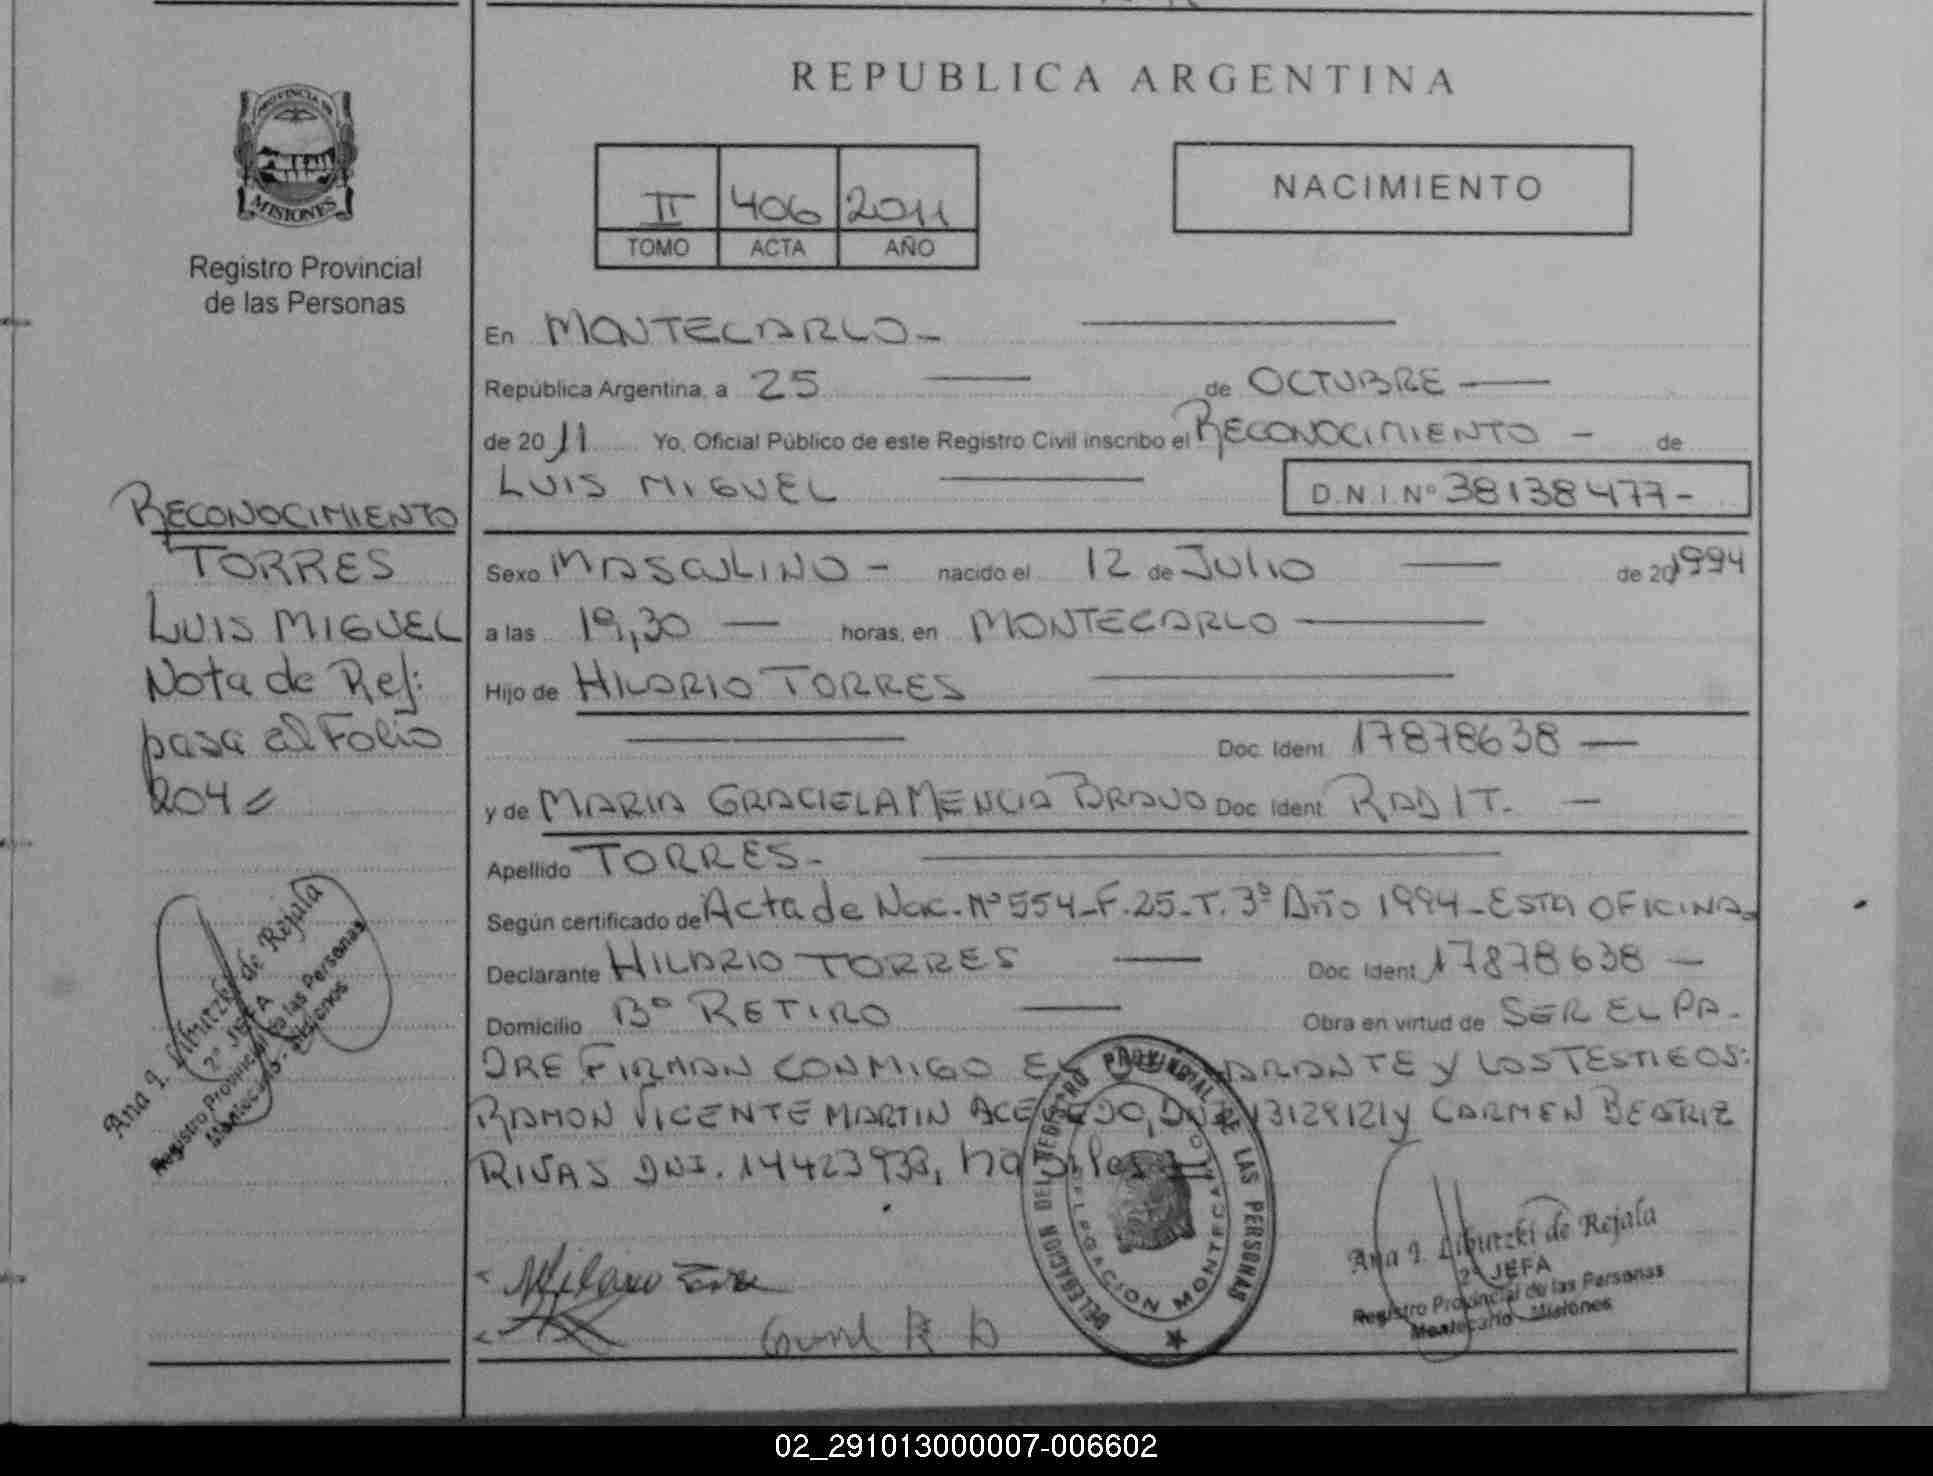 REPUBLICA ARGENTINA
PROVINCIA DE
MISIONES
Registro Provincial
de las Personas
II 406 2011
TOMO ACTA AÑO
NACIMIENTO
En MONTECARLO-
República Argentina, a 25 de OCTUBRE
de 2011 Yo, Oficial Público de este Registro Civil inscribo el RECONOCIMIENTO - de
LUIS MIGUEL
D.N.I.Nº 38138477-
Sexo MASCULINO - nacido el 12 de JULIO de 20 1994
a las 19,30 horas, en MONTECARLO
Hijo de HILARIO TORRES
Doc. Ident. 17878638
y de MARIA GRACIELA MENCIA BRAVO Doc. Ident. RADIT.
Apellido TORRES-
Según certificado de Acta de Nac. Nº 554-F.25-T.3º Año 1994-ESTA OFICINA
Declarante HILARIO TORRES Doc. Ident. 17878638
Domicilio Bº RETIRO Obra en virtud de SER EL PA-
DRE FIRMAN CONMIGO Y LOS TESTIGOS:
RAMON VICENTE MARTIN 13129121 y CARMEN BEATRIZ
RIVAS DNI. 14423933, habiles
RECONOCIMIENTO
TORRES
LUIS MIGUEL
Nota de Ref:
pasa al Folio
204
Ana I. Liburzki de Rejala
2º JEFA
Registro Provincial de las Personas
Montecarlo - Misiones
Hilario Torres
DELEGACION DEL REGISTRO PROVINCIAL DE LAS PERSONAS
DELEGACION MONTECARLO
Ana I. Liburzki de Rejala
2º JEFA
Registro Provincial de las Personas
Montecarlo - Misiones
02_291013000007-006602